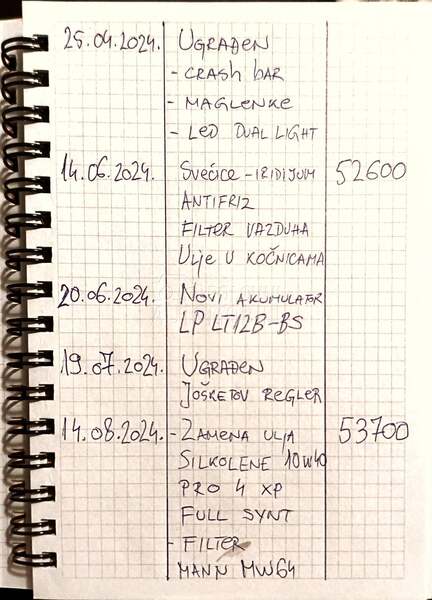 25.04.2024. UGRAĐEN
- CRASH BAR
- MAGLENKE
- LED DUAL LIGHT
14.06.2024. SVEĆICE - IRIDIJUM 52600
ANTIFRIZ
FILTER VAZDUHA
Ulje U KOČNICAMA
20.06.2024. NOVI AKUMULATOR
LP LT12B-BS
19.07.2024. UGRAĐEN
JOŠKETOV REGLER
14.08.2024. - ZAMENA ULJA 53700
SILKOLENE 10W40
PRO 4 XP
FULL SYNT
- FILTER
MANN MW64